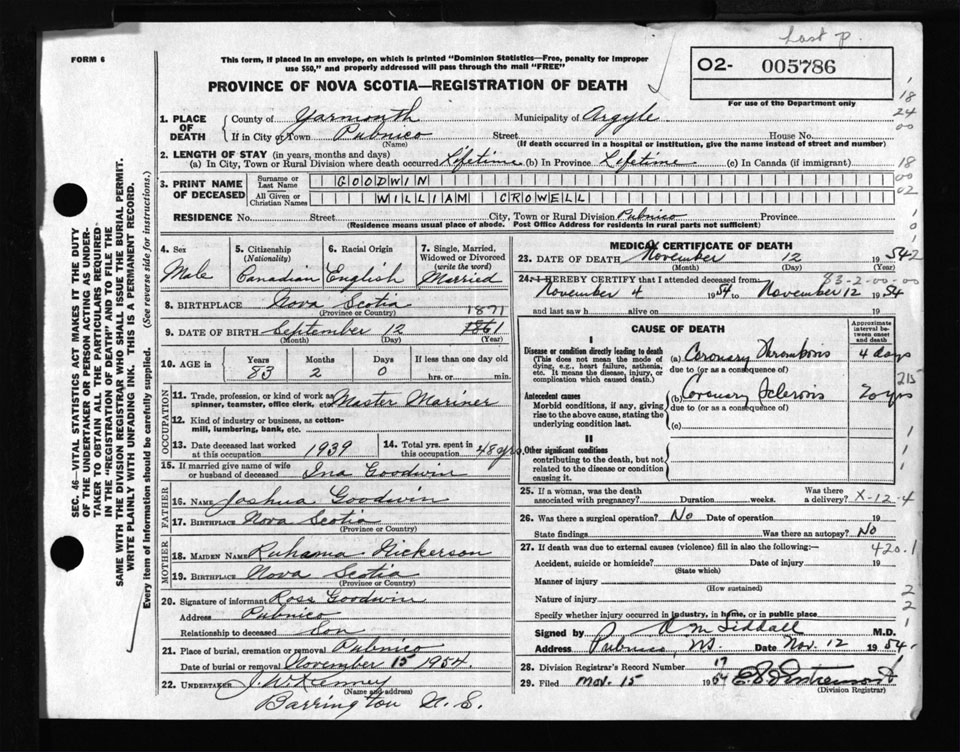 Last p.
FORM 6
This form, if placed in an envelope, on which is printed "Dominion Statistics—Free, penalty for improper
use $50," and properly addressed will pass through the mail "FREE"
O2- 005786
For use of the Department only
PROVINCE OF NOVA SCOTIA—REGISTRATION OF DEATH
SEC. 46—VITAL STATISTICS ACT MAKES IT THE DUTY
OF THE UNDERTAKER OR PERSON ACTING AS UNDER-
TAKER TO OBTAIN ALL THE PARTICULARS REQUIRED
IN THE "REGISTRATION OF DEATH" AND TO FILE THE
SAME WITH THE DIVISION REGISTRAR WHO SHALL ISSUE THE BURIAL PERMIT.
WRITE PLAINLY WITH UNFADING INK. THIS IS A PERMANENT RECORD.
Every item of Information should be carefully supplied. (See reverse side for instructions.)
1. PLACE OF DEATH
County of Yarmouth Municipality of Argyle
If in City or Town Pubnico Street House No.
(Name) (If death occurred in a hospital or institution, give the name instead of street and number)
2. LENGTH OF STAY (in years, months and days)
(a) In City, Town or Rural Division where death occurred Lifetime (b) In Province Lifetime (c) In Canada (if immigrant)
3. PRINT NAME OF DECEASED
Surname or Last Name GOODWIN
All Given or Christian Names WILLIAM CROWELL
RESIDENCE No. Street City, Town or Rural Division Pubnico Province
(Residence means usual place of abode. Post Office Address for residents in rural parts not sufficient)
18
24
00
18
00
02
4. Sex Male
5. Citizenship (Nationality) Canadian
6. Racial Origin English
7. Single, Married, Widowed or Divorced (write the word) Married
8. BIRTHPLACE Nova Scotia
(Province or Country)
1871
9. DATE OF BIRTH September 12 1861
(Month) (Day) (Year)
10. AGE in Years Months Days If less than one day old
83 2 0 hrs. or min.
OCCUPATION
11. Trade, profession, or kind of work as spinner, teamster, office clerk, etc. Master Mariner
12. Kind of industry or business, as cotton-mill, lumbering, bank, etc.
13. Date deceased last worked at this occupation 1939
14. Total yrs. spent in this occupation 48 yrs
15. If married give name of wife or husband of deceased Ina Goodwin
FATHER
16. NAME Joshua Goodwin
17. BIRTHPLACE Nova Scotia
(Province or Country)
MOTHER
18. MAIDEN NAME Ruhama Nickerson
19. BIRTHPLACE Nova Scotia
(Province or Country)
20. Signature of informant Ross Goodwin
Address Pubnico
Relationship to deceased Son
21. Place of burial, cremation or removal Pubnico
Date of burial or removal November 15 1954.
22. UNDERTAKER J. W. Kenney
(Name and address)
Barrington N. S.
MEDICAL CERTIFICATE OF DEATH
23. DATE OF DEATH November 12 1954
(Month) (Day) (Year)
83-2-00-00
24. I HEREBY CERTIFY that I attended deceased from:
November 4 1954 to November 12 1954
and last saw h alive on 19
CAUSE OF DEATH
Approximate interval between onset and death
I
Disease or condition directly leading to death (a) Coronary Thrombosis 4 days
(This does not mean the mode of dying, e.g., heart failure, asthenia, etc. It means the disease, injury, or complication which caused death.)
due to (or as a consequence of)
Antecedent causes (b) Coronary Sclerosis 20 yrs
Morbid conditions, if any, giving rise to the above cause, stating the underlying condition last.
due to (or as a consequence of)
(c)
215
II
Other significant conditions
contributing to the death, but not related to the disease or condition causing it.
25. If a woman, was the death associated with pregnancy? Duration weeks. Was there a delivery? X-12-4
26. Was there a surgical operation? No Date of operation 19
State findings Was there an autopsy? No
27. If death was due to external causes (violence) fill in also the following:— 420.1
Accident, suicide or homicide? Date of injury 19
(State which)
Manner of injury
(How sustained)
Nature of injury
Specify whether injury occurred in industry, in home, or in public place
2
2
Signed by M Siddall M.D.
Address Pubnico, NS. Date Nov. 12 1954
28. Division Registrar's Record Number 17
29. Filed Nov. 15 1954
(Division Registrar)